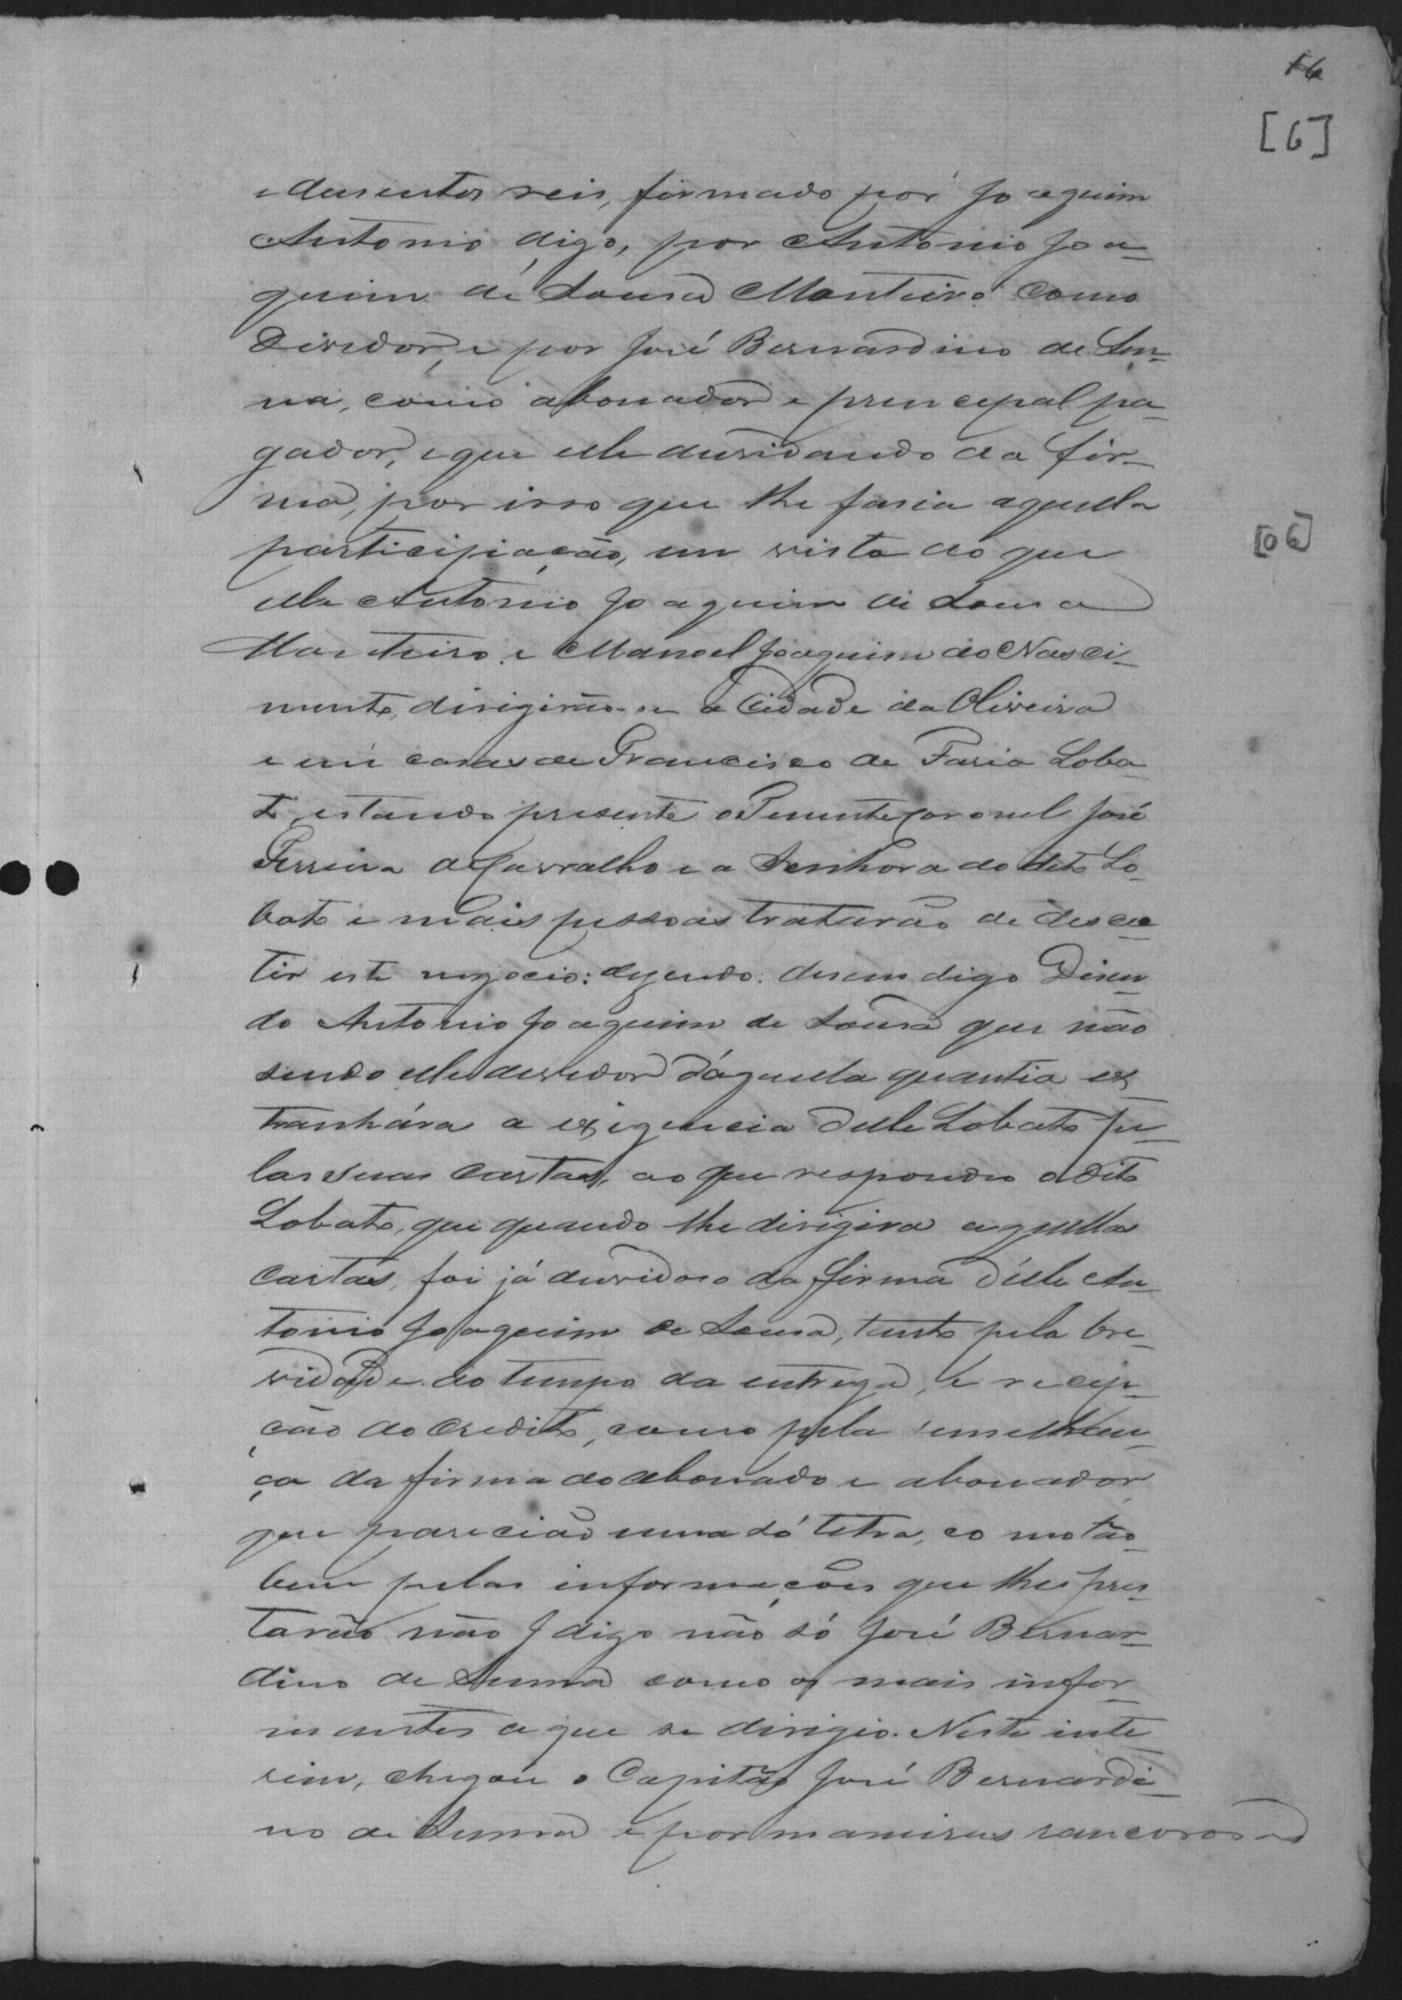 16
[6]
e dusentos reis, firmado por Joaquim
Antonio digo, por Antonio Joa-
quim de Sousa Monteiro como
Devedor, e por José Bernardino de Sen-
na, como abonador e principal pa-
gador, e que elle duvidando da fir-
ma, por isso que lhe fasia aquella
participação, em vista do que
[06]
elle Antonio Joaquim de Sousa
Monteiro e Manoel Joaquim do Nasci-
mento, dirigirão-se a Cidade da Oliveira
e em casas de Francisco de Faria Loba-
to, estando presente o Tenente Coronel José
Ferreira de Carvalho e a Senhora do dito Lo-
bato e mais pessoas tratarão de descu-
tir este negocio: dizendo: disem digo Disen-
do Antonio Joaquim de Sousa que não
sendo elle devedor d'aquella quantia ex-
tranhára a exigencia delle Lobato pe-
las suas cartas, ao que respondeo o dito
Lobato, que quando lhe dirigira aquellas
cartas, foi já duvidoso da firma d'elle An-
tonio Joaquim de Sousa, tanto pela bre-
vidade do tempo da entrega, e recep-
ção do credito, como pela semelhan-
ça da firma do abonado e abonador
que parecião uma só letra, como tão-
bem pelas informações que lhes pres-
tarão não J digo não só José Bernar-
dino de Senna como os mais infor-
mantes a que se dirigio. Neste inte-
rim, chegou o Capitão José Bernardi-
no de Senna e por maneiras rancorosas